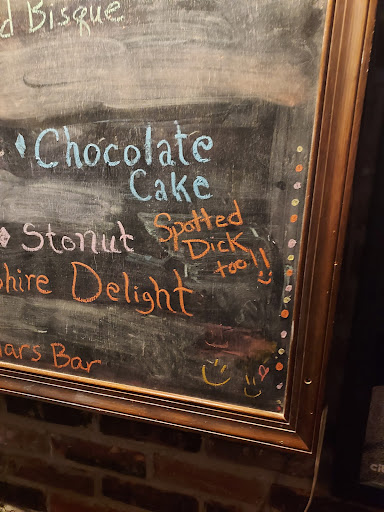 d Bisque
Chocolate
Cake
Stonut
Spotted
Dick
too!!
hire Delight
ars Bar